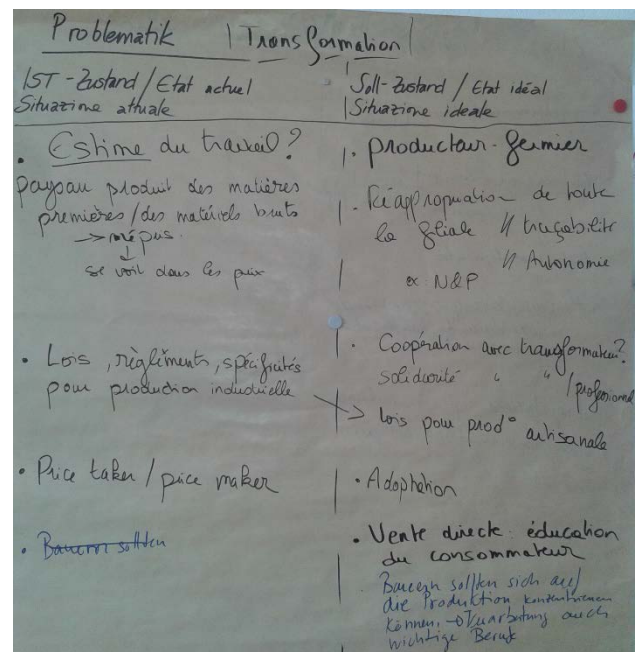 Problematik | Transformation |
IST-Zustand / Etat actuel
Situazione attuale
Soll-Zustand / Etat idéal
Situazione ideale
• Estime du travail?
paysan produit des matières
premières / des matériels bruts
→ mépris.
↓
se voit dans les prix
• Lois, règlements, spécificités
pour production industrielle
• Price taker / price maker
• Bauern sollten
• producteur-fermier
• Réappropriation de toute
la filiale // traçabilité
// Autonomie
ex N&P
• Coopération avec transformateur?
solidarité " " / professionnel
> lois pour prod° artisanale
• Adaptation
• Vente directe: éducation
du consommateur
Bauern sollten sich auf
die Produktion konzentrieren
können, → Verarbeitung auch
wichtige Beruf